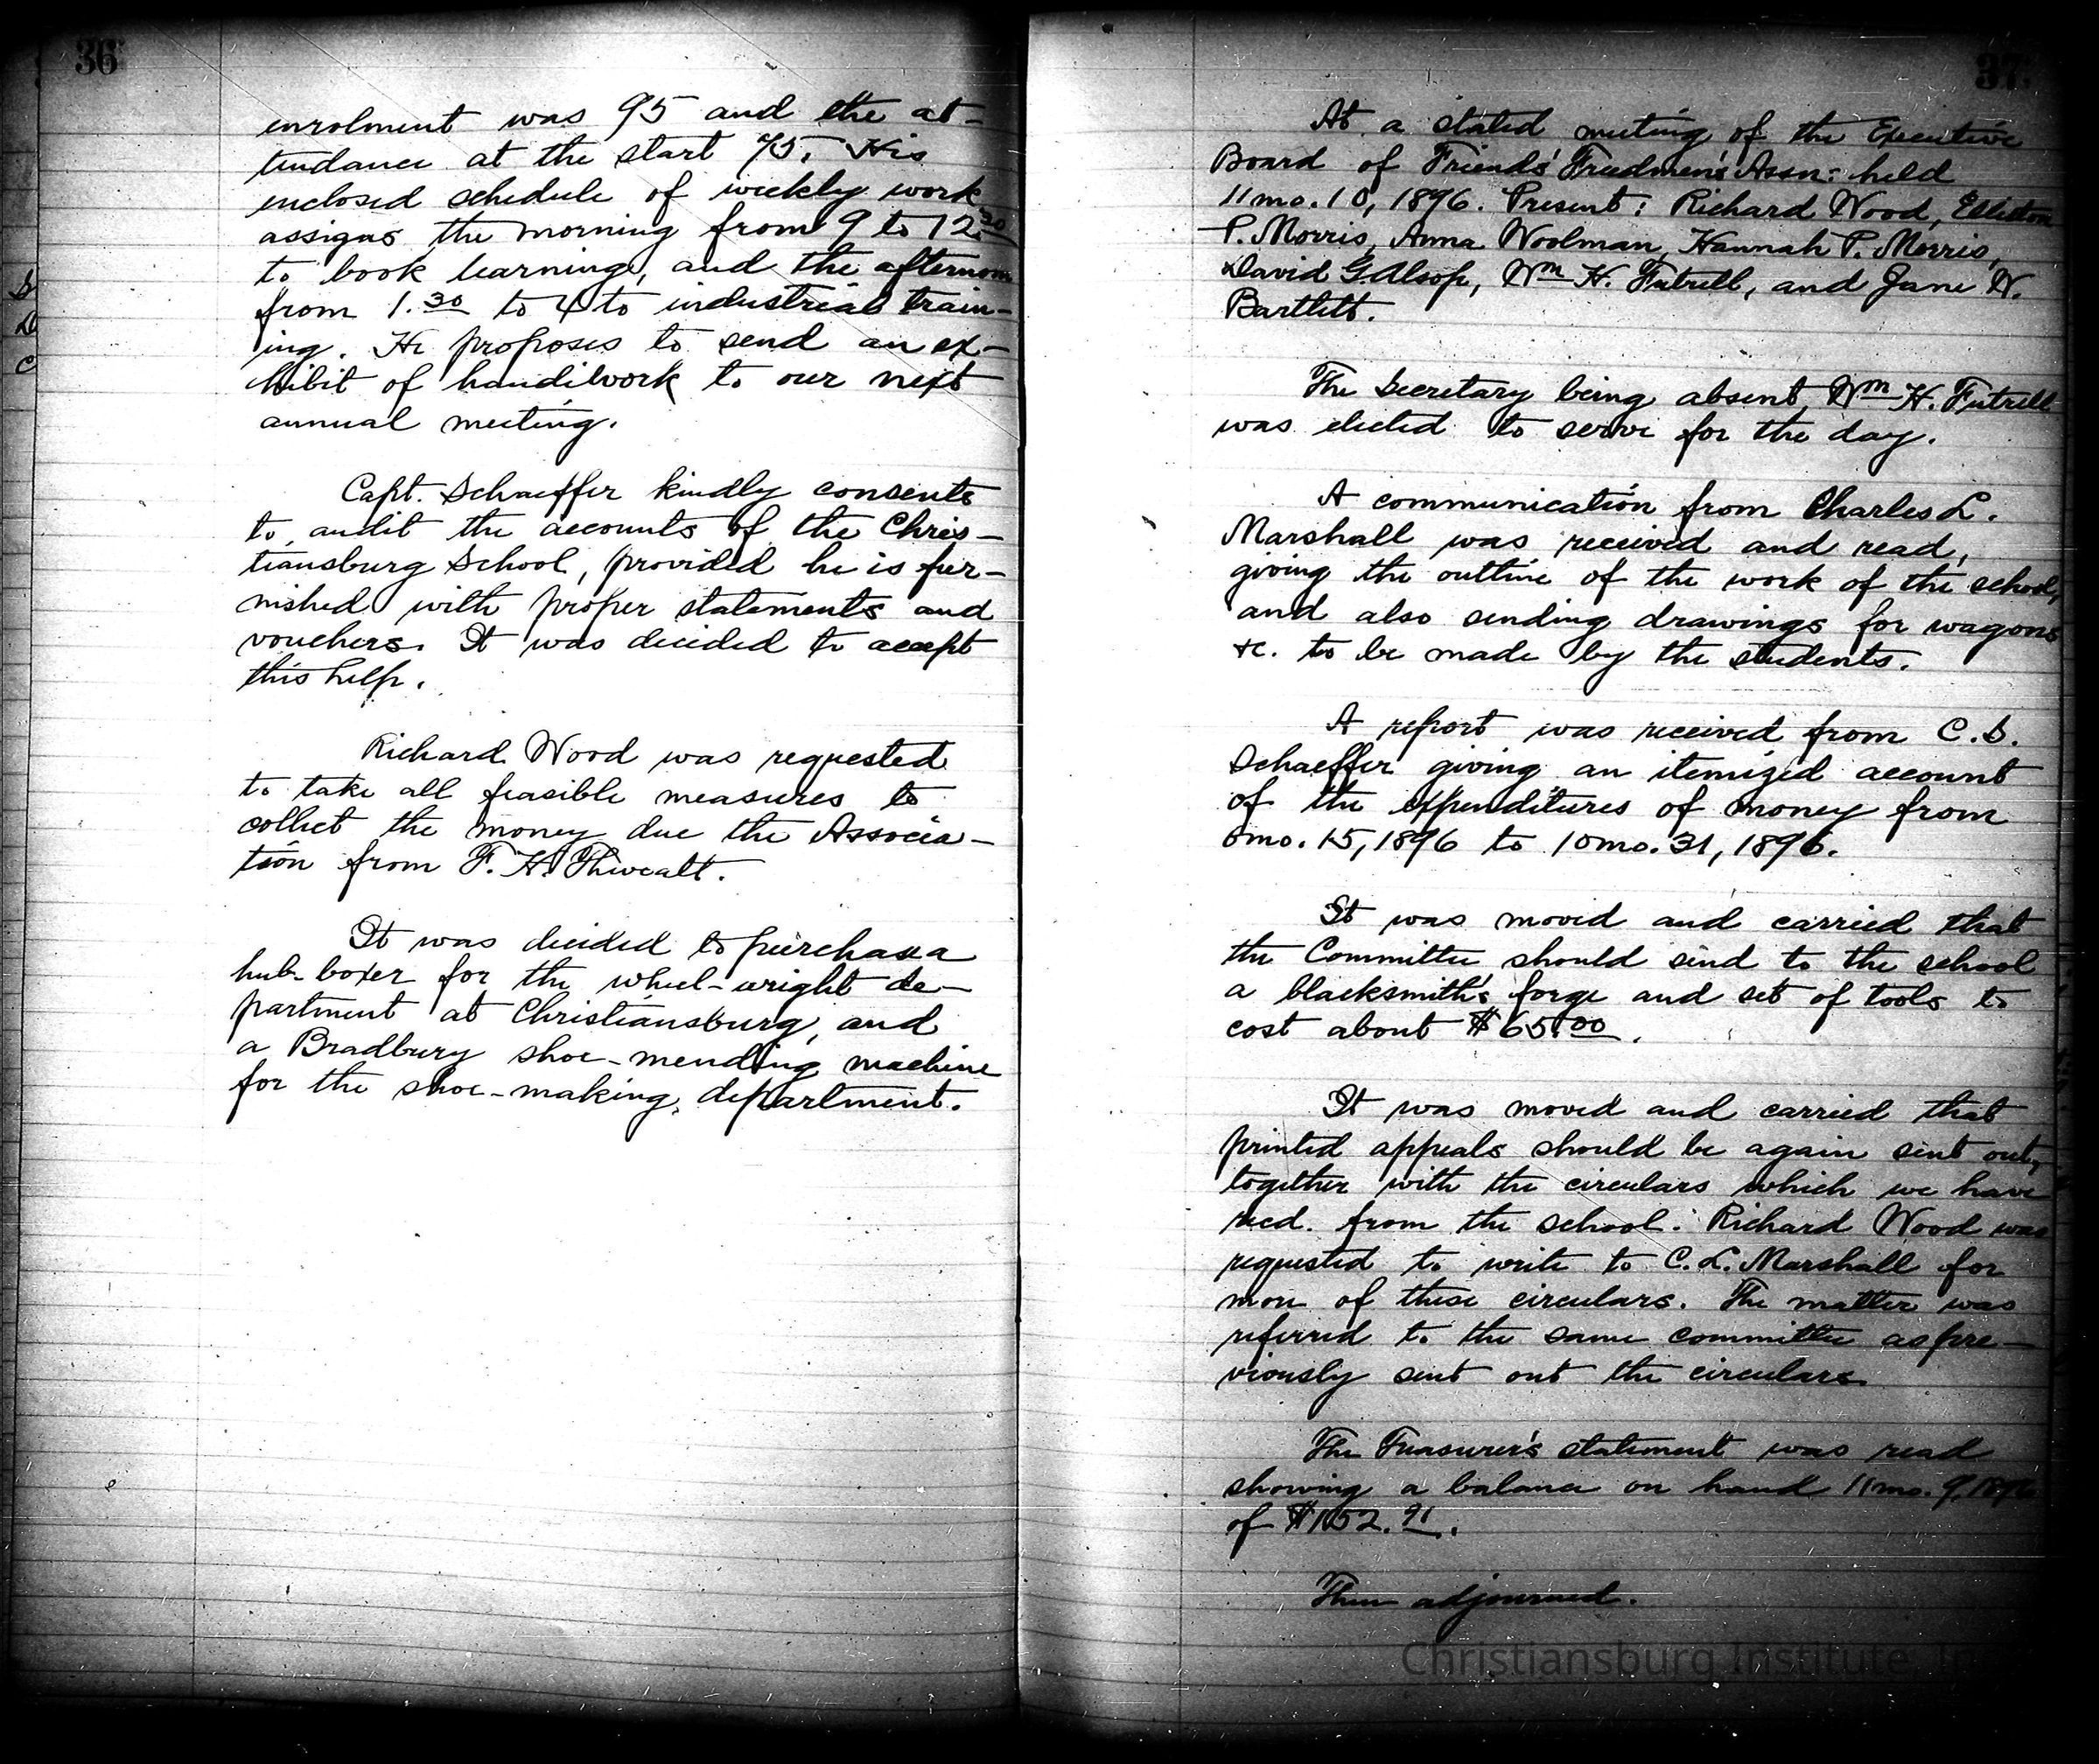 36
enrolment was 95 and the at-
tendance at the start 75. His
enclosed schedule of weekly work
assigns the morning from 9 to 12.30
to book learning, and the afternoon
from 1.30 to 4 to industrial train-
ing. He proposes to send an ex-
hibit of handiwork to our next
annual meeting.
Capt. Schaeffer kindly consents
to audit the accounts of the Chris-
tiansburg School, provided he is fur-
nished with proper statements and
vouchers. It was decided to accept
this help.
Richard Wood was requested
to take all feasible measures to
collect the money due the Associa-
tion from F. H. Thweatt.
It was decided to purchase a
hub-boxer for the wheel-wright de-
partment at Christiansburg, and
a Bradbury shoe-mending machine
for the shoe-making department.
37.
At a stated meeting of the Executive
Board of Friends' Freedmen's Assn: held
11 mo. 10, 1896. Present: Richard Wood, Elliston
P. Morris, Anna Woolman, Hannah P. Morris,
David G. Alsop, Wm H. Futrell, and Jane W.
Bartlett.
The Secretary being absent, Wm H. Futrell
was elected to serve for the day.
A communication from Charles L.
Marshall was received and read,
giving the outline of the work of the school,
and also sending drawings for wagons
&c. to be made by the students.
A report was received from C. S.
Schaeffer giving an itemized account
of the expenditures of money from
mo. 15, 1896 to 10 mo. 31, 1896.
It was moved and carried that
the Committee should send to the school
a blacksmith's forge and set of tools to
cost about $65.00.
It was moved and carried that
printed appeals should be again sent out,
together with the circulars which we have
recd. from the school. Richard Wood was
requested to write to C. L. Marshall for
more of these circulars. The matter was
referred to the same committee as pre-
viously sent out the circulars.
The Treasurer's statement was read
showing a balance on hand 11 mo. 9, 1896
of $152.91.
Then adjourned.
Christiansburg Institute, I